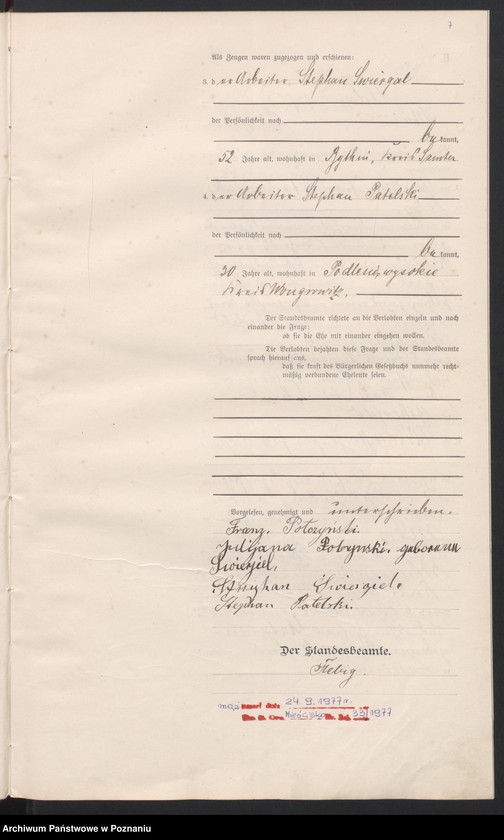 7
Als Zeugen waren zugezogen und erschienen:
3. der Arbeiter Stephan Swiergal
der Persönlichkeit nach
be kannt,
52 Jahre alt, wohnhaft in Bythin, Kreis Samter
4. der Arbeiter Stephan Patelski
der Persönlichkeit nach
be kannt,
30 Jahre alt, wohnhaft in Podlesiewysokie
Kreis Wongrowitz.
Der Standesbeamte richtete an die Verlobten einzeln und nach
einander die Frage:
ob sie die Ehe mit einander eingehen wollen.
Die Verlobten bejahten diese Frage und der Standesbeamte
sprach hierauf aus,
daß sie kraft des Bürgerlichen Gesetzbuchs nunmehr recht-
mäßig verbundene Eheleute seien.
Vorgelesen, genehmigt und unterschrieben.
Franz
geborenn
Stephan Swiergiel.
Stephan Patelski.
Der Standesbeamte.
Fiebig.
mąż 24.9.1977 r.
33/1977
Archiwum Państwowe w Poznaniu